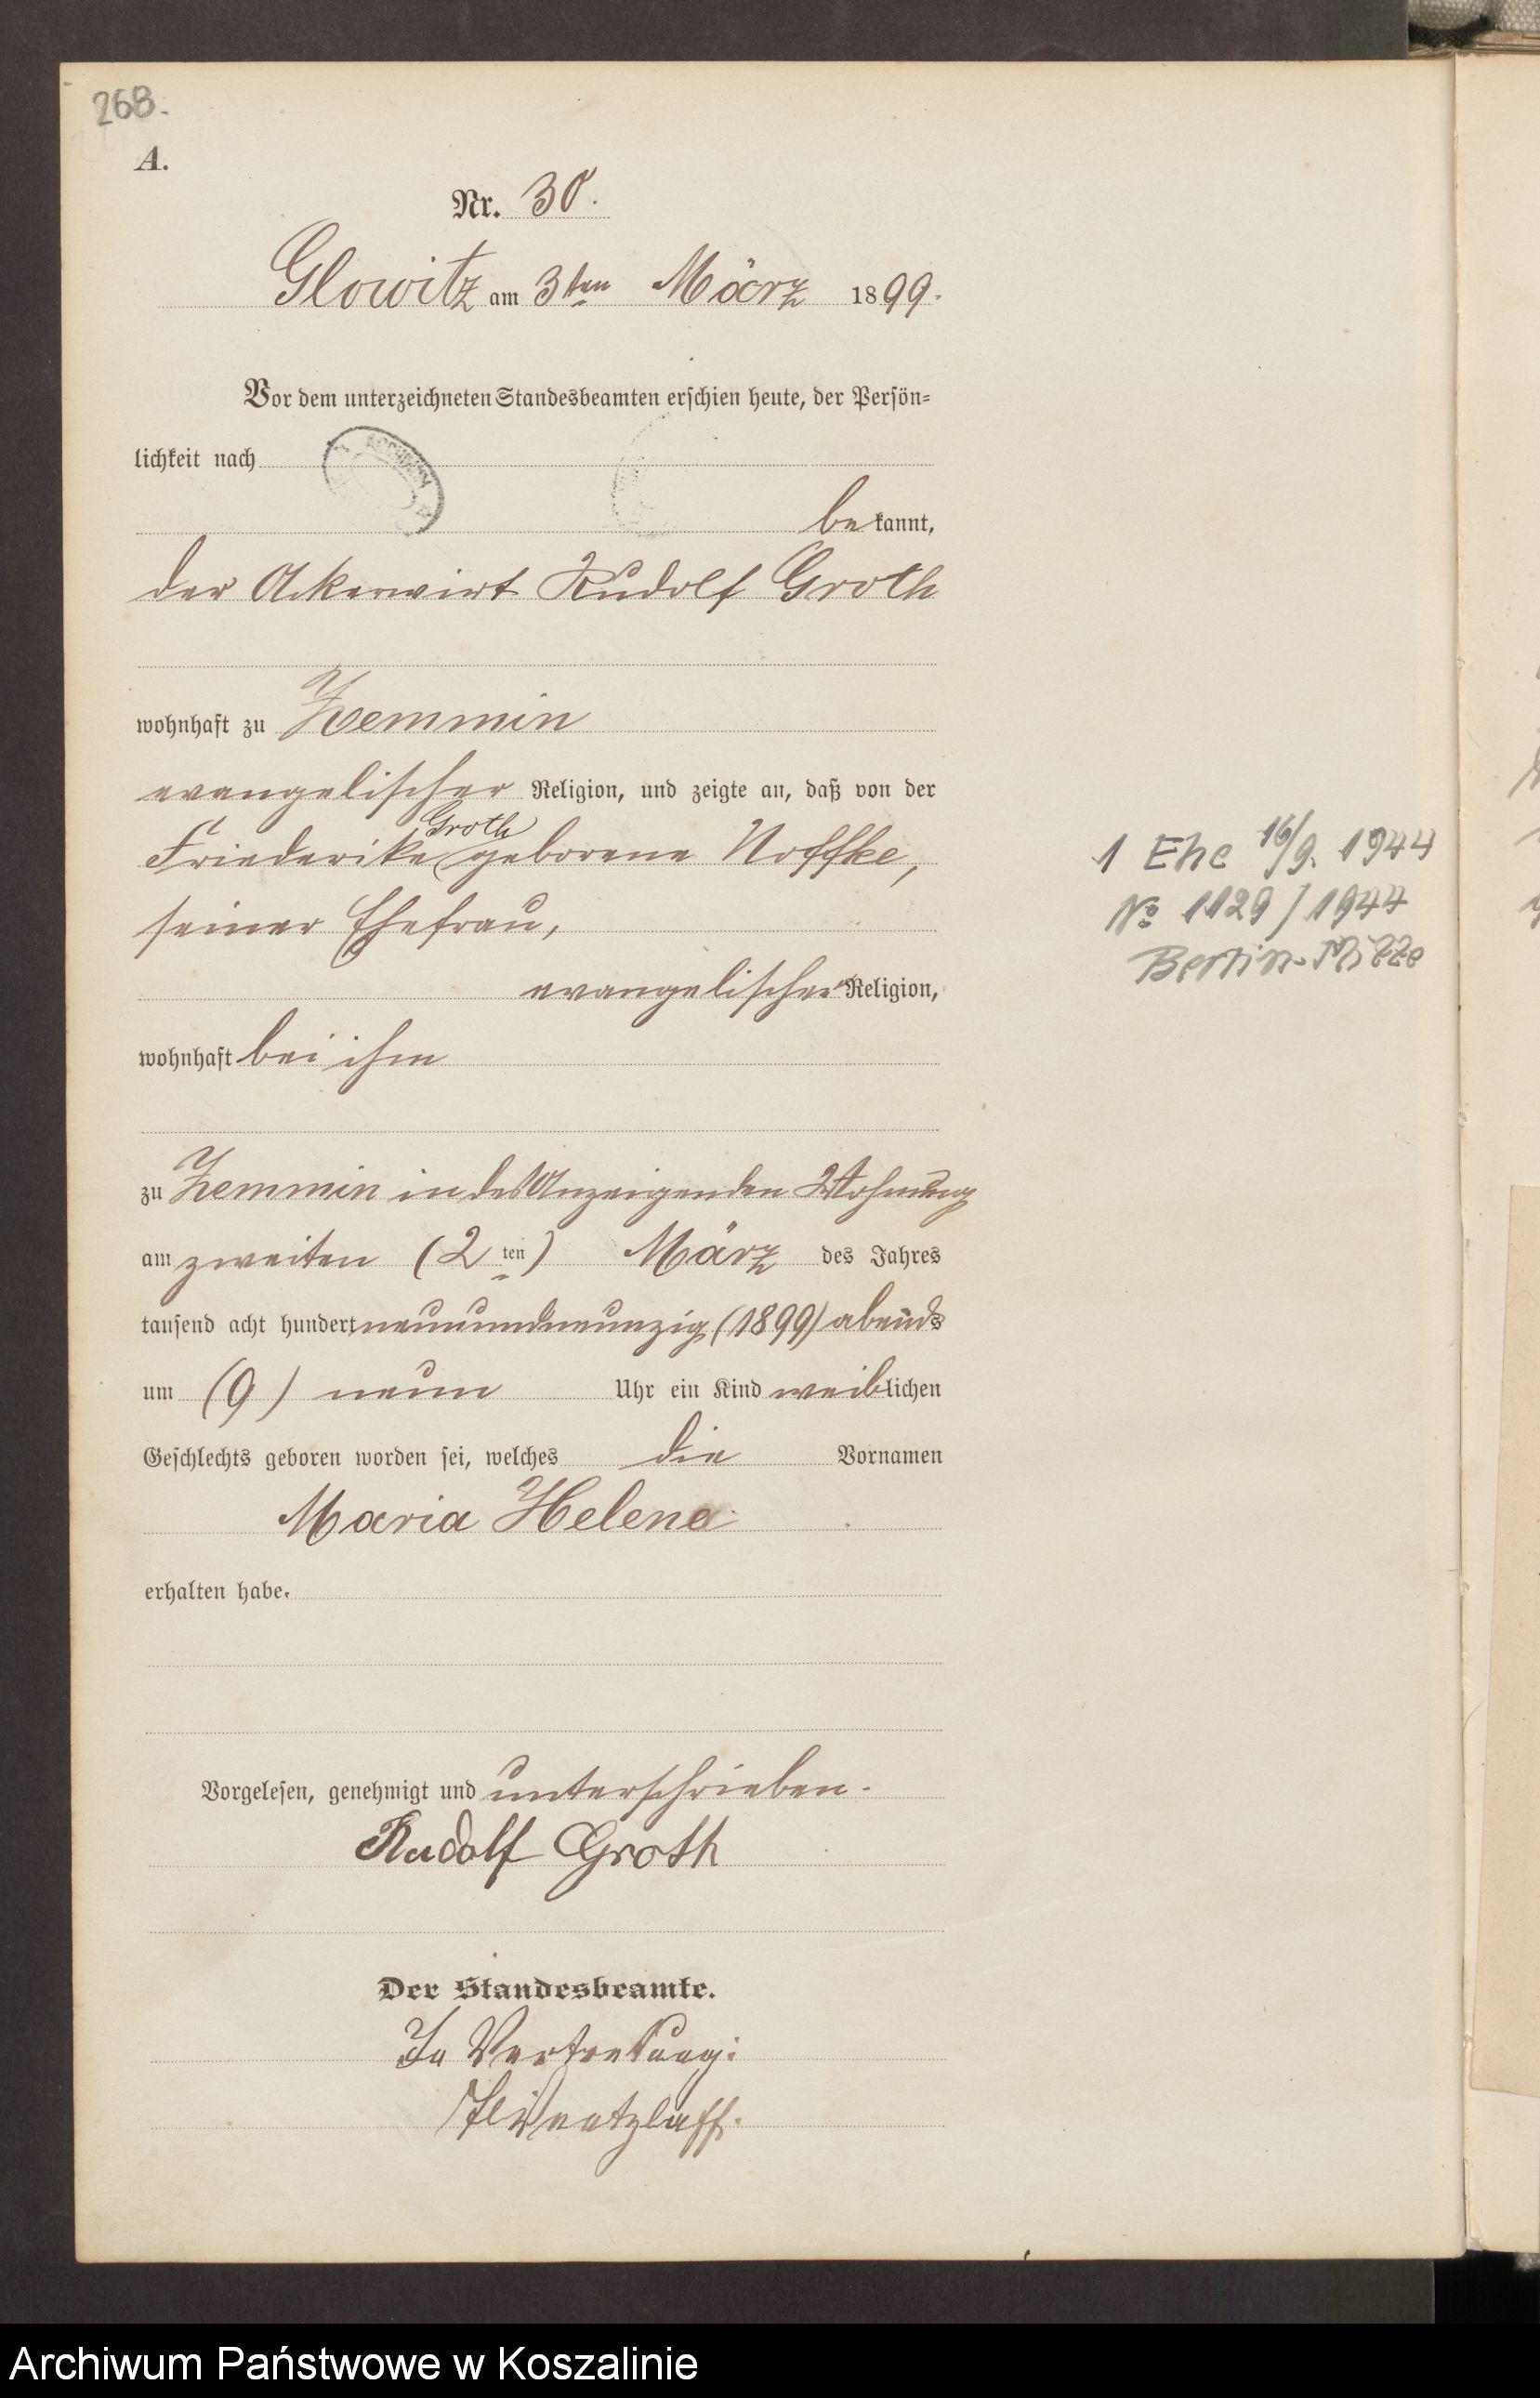 268.
A.
Nr. 30.
Glowitz am 3ten März 1899.
Vor dem unterzeichneten Standesbeamten erschien heute, der Persön-
lichkeit nach
bekannt,
der Ackerwirt Rudolf Groth
wohnhaft zu Zemmin
evangelischer Religion, und zeigte an, daß von der
Groth
Friederike geborene Noffke,
seiner Ehefrau,
evangelischer Religion,
wohnhaft bei ihm
zu Zemmin in des Anzeigenden Wohnung
am zweiten (2ten) März des Jahres
tausend acht hundert neunundneunzig (1899) abends
um (9) neun Uhr ein Kind weiblichen
Geschlechts geboren worden sei, welches die Vornamen
Maria Helene
erhalten habe.
Vorgelesen, genehmigt und unterschrieben.
Rudolf Groth
Der Standesbeamte.
In Vertretung:
1 Ehe 16/9. 1944
No 1129/1944
Berlin-Mitte
Archiwum Państwowe w Koszalinie